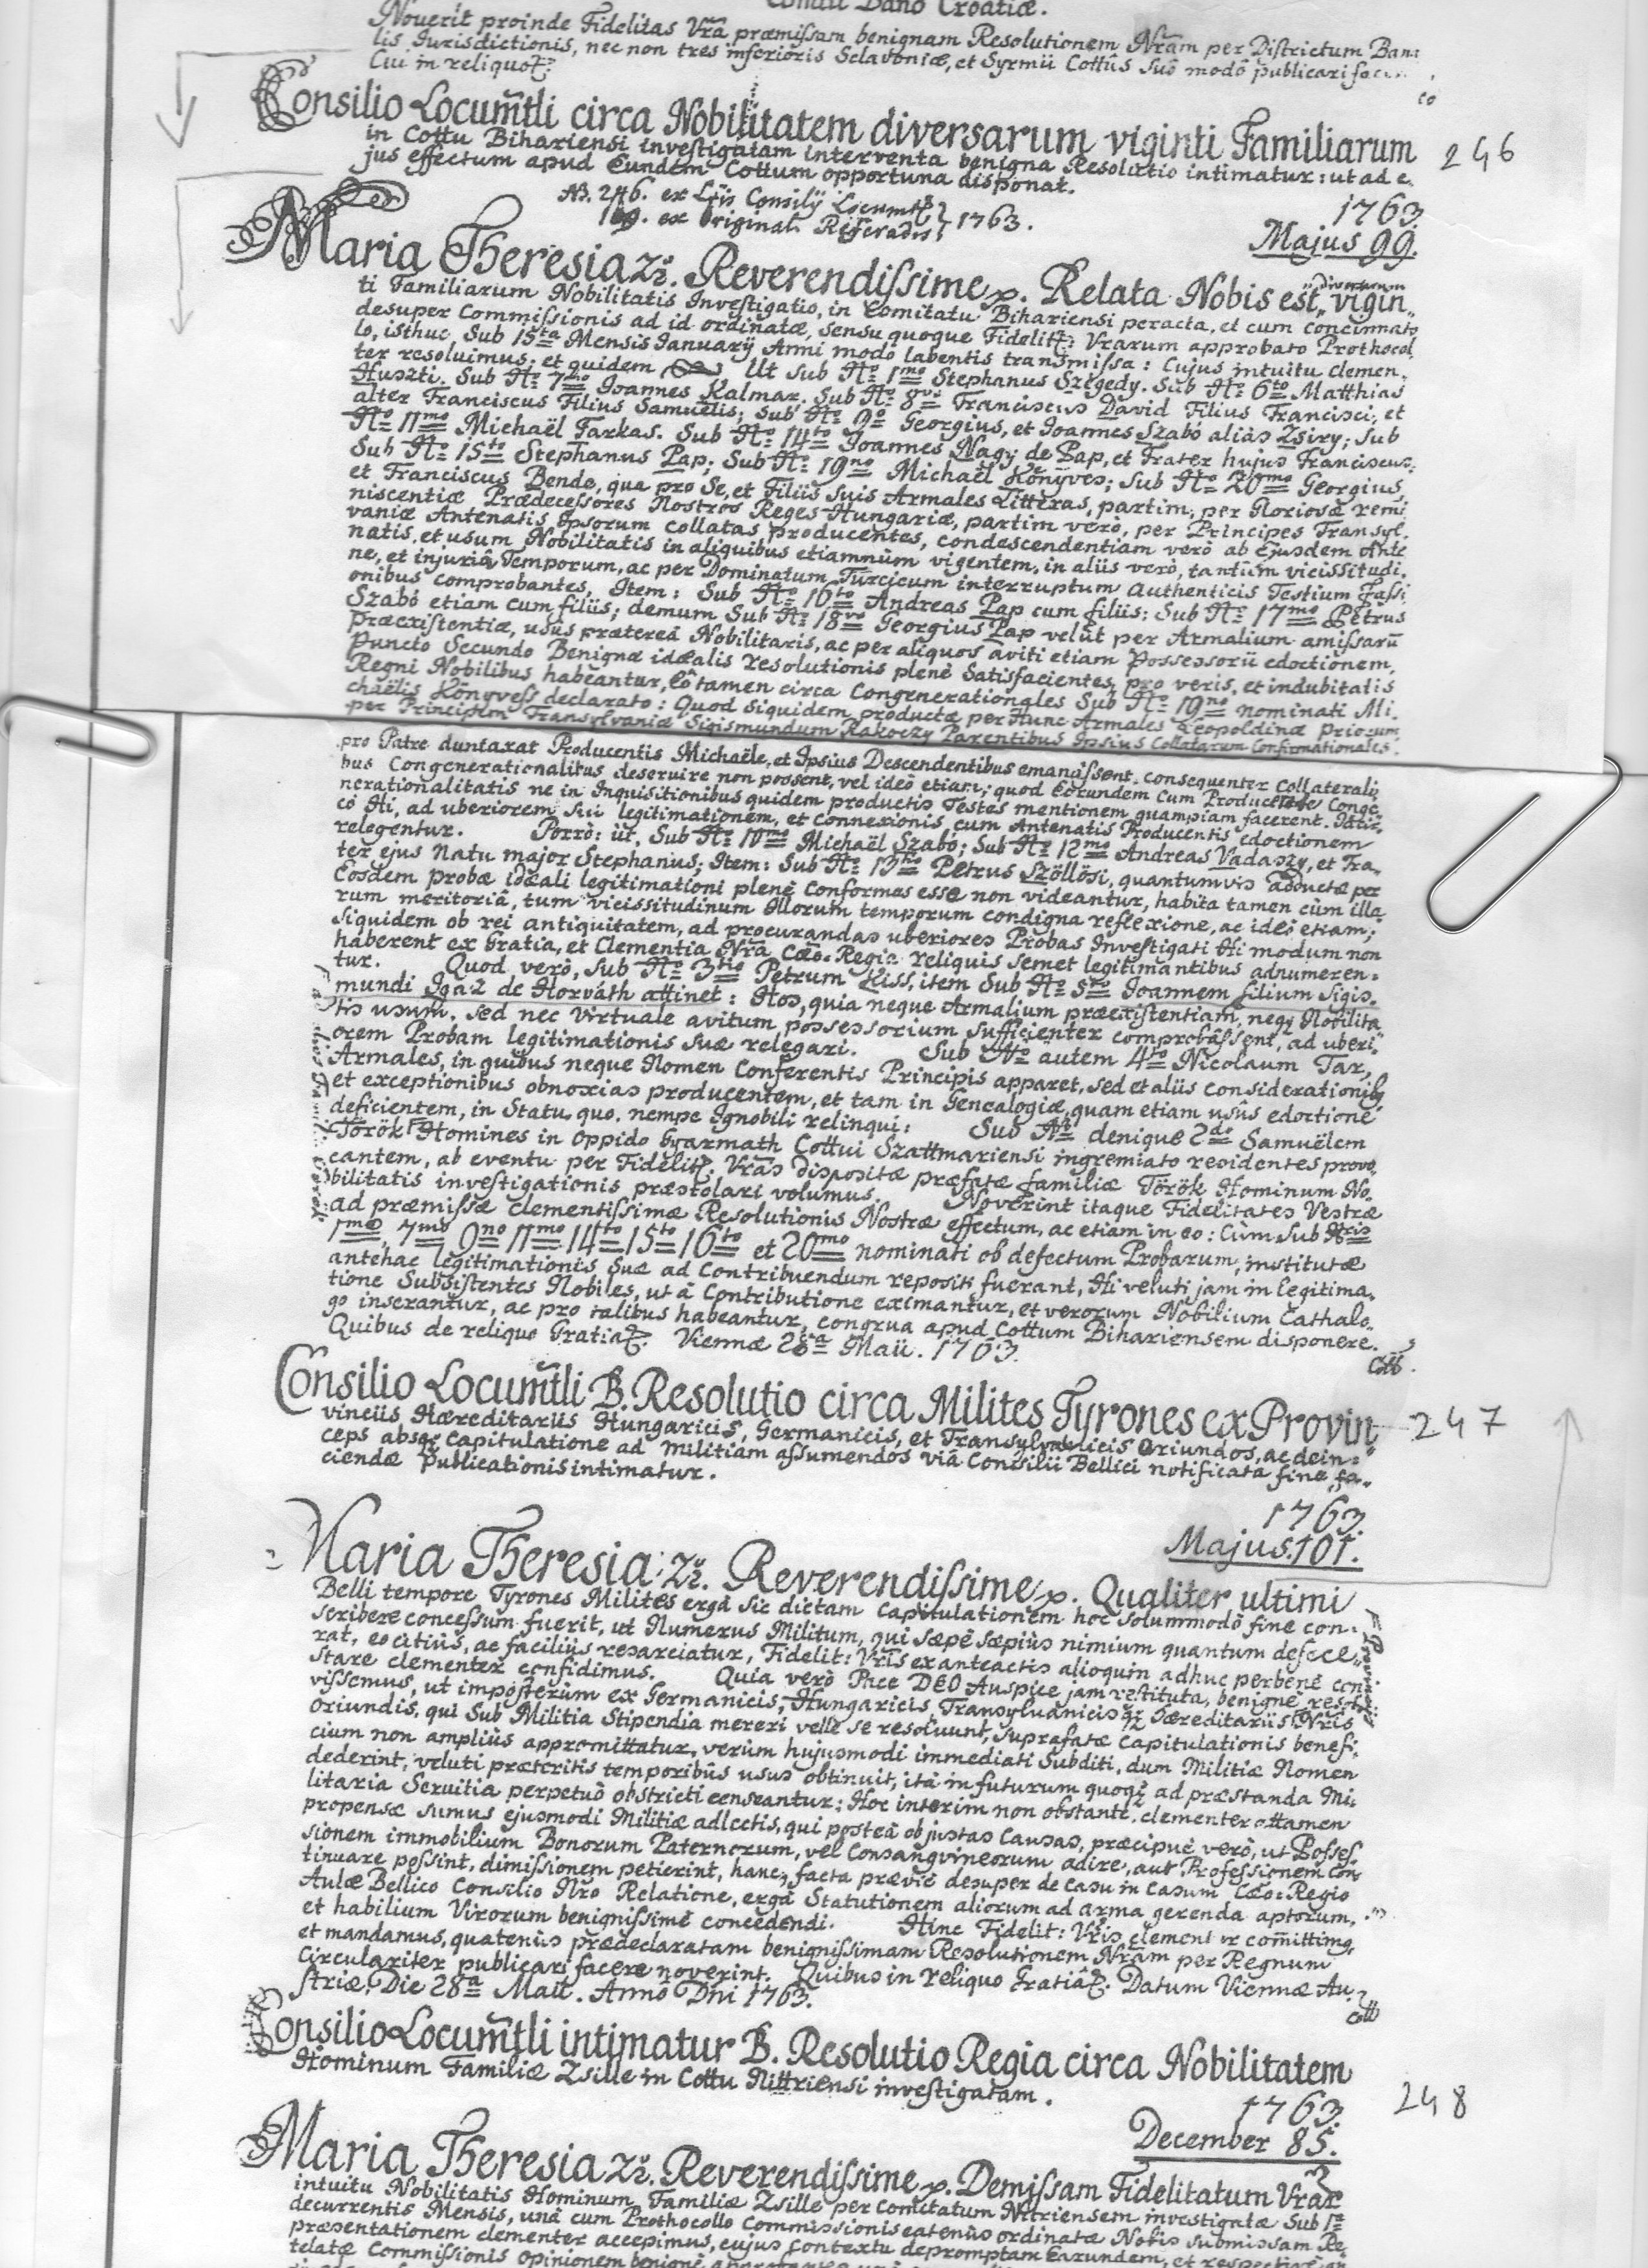 Consilii Bano Croatiæ.
Noverit proinde Fidelitas Vra præmissam benignam Resolutionem Nram per Districtum Bana
lis Jurisdictionis, nec non tres inferioris Sclavoniæ, et Syrmii Cottus suô modô publicari
Cui in reliquo
Consilio Locumtli circa Nobilitatem diversarum viginti Familiarum
in Cottu Bihariensi investigatam interventa benigna Resolutio intimatur: ut ad e,
jus effectum apud Eundem Cottum opportuna disponat.
246
No. 246. ex Lris Consilij Locumt
109. ex original. Referadis 1763.
1763.
Majus 99.
Maria Theresia Reverendissime Relata Nobis est diversarum vigin„
ti Familiarum Nobilitatis Investigatio, in Comitatu Bihariensi peracta, et cum concinnato
desuper Commissionis ad id ordinatæ, sensu quoque Fidelit: Vrarum approbato Prothocol
lo, isthuc Sub 15ta Mensis January Anni modò labentis transmissa: Cujus intuitu clemen„
ter resoluimus; et quidem Ut sub No 1mo Stephanus Szegedy. Sub No 6to Matthias
Huszti. Sub No 7mo Joannes Kalmar. Sub No 8vo Franciscus David Filius Francisci, et
alter Franciscus Filius Samuëlis; Sub No 9o Georgius, et Joannes Szabó aliàs Zsiry; Sub
No 11mo Michaël Farkas. Sub No 14to Joannes Nagy de Pap, et Frater hujus Franciscus.
Sub No 15to Stephanus Pap; Sub No 19no Michaël Könyves; Sub No 20mo Georgius,
et Franciscus Bende, qua pro Se, et Filiis suis Armales Litteras, partim, per Gloriosæ remi
niscentiæ Prædecessores Nostros Reges Hungariæ, partim verò, per Principes Transyl.
vaniæ Antenatis Ipsorum collatas producentes, condescendentiam verò ab Ejusdem Ante
natis, et usum Nobilitatis in aliquibus etiamnùm vigentem, in aliis verò, tantùm vicissitudi„
ne, et injuriâ Temporum, ac per Dominatum Turcicum interruptum Authenticis Testium Fassi
onibus comprobantes, Item: Sub No 16to Andreas Pap cum filiis: Sub No 17mo Petrus
Szabó etiam cum filiis; demum Sub No 18vo Georgius Pap velùt per Armalium amissarū
præexistentiæ, usûs prætereà Nobilitaris, ac per aliquos aviti etiam Possessorii edoctionem,
Puncto Secundo Benignæ idæalis resolutionis plenè Satisfacientes, pro veris, et indubitatis
Regni Nobilibus habeantur, Eô tamen circa Congenerationales Sub No 19no nominati Mi„
chaëlis Könyvess declarato: Quod siquidem productæ per Hunc Armales Leopoldinæ Priorum
per Principem Transylvaniæ Sigismundum Rakoczy Parentibus Ipsius Collatarum Confirmationales
pro Patre duntaxat Producentis Michaële, et Ipsius Descendentibus emanâssent. consequenter Collaterali,
bus Congenerationalibus deservire non possent, vel ideò etiam; quod Eorundem cum Producente Conge
nerationalitatis ne in Inquisitionibus quidem productis Testes mentionem quampiam facerent. Idcir„
cò Hi, ad uberiorem Sui legitimationem, et connexionis cum Antenatis Producentis edoctionem
relegentur. Porrò: ùt, Sub No 10mo Michaël Szabó; Sub No 12mo Andreas Vadaszy, et Fra„
ter ejus Natu major Stephanus; Item: Sub No 13tio Petrus Szöllösi, quantumvis adductæ per
Eosdem probæ idæali legitimationi plenè conformes esse non videantur, habita tamen cùm illa
rum meritoriâ, tum vicissitudinum Illorum temporum condigna reflexione, ac ideò etiam;
Siquidem ob rei antiquitatem, ad procurandas uberiores Probas Investigati Hi modum non
haberent ex Gratia, et Clementia Nra Cæo-Regia reliquis semet legitimantibus adnumeren„
tur. Quod verò, Sub No 3tio Petrum Kiss, item Sub No 5to Joannem filium Sigis„
mundi Igaz de Horváth attinet: Hos, quia neque Armalium præexistentiam, neq Nobilita„
tis usum, sed nec virtuale avitum possessorium sufficienter comprobâssent, ad uberi„
orem Probam legitimationis suæ relegari. Sub No autem 4to Nicolaum Tar,
Armales, in quibus neque Nomen Conferentis Principis apparet, sed et aliis considerationibg
et exceptionibus obnoxias producentem, et tam in Genealogiæ, quam etiam usûs edoctione
deficientem, in Statu quo, nempe Ignobili relinqui: Sub No denique 2do Samuëlem
Török Homines in oppido Gyarmath Cottui Szattmariensi ingremiato residentes provo„
cantem, ab eventu per Fidelit. Vras dispositæ præfatæ familiæ Török Hominum No„
bilitatis investigationis præstolari volumus. Noverint itaque Fidelitates Vestræ
ad præmissæ clementissimæ Resolutionis Nostræ effectum, ac etiam in eo: Cùm Sub Nris
1mo, 7mo 9no 11mo 14to 15to 16to et 20mo nominati ob defectum Probarum, institutæ
antehac legitimationis suæ ad Contribuendum repositi fuerant, Hi veluti jam in legitima„
tione Subsistentes Nobiles, ut à Contributione eximantur, et verorum Nobilium Cathalo„
go inserantur, ac pro talibus habeantur, congrua apud Cottum Bihariensem disponere.
Quibus de reliquo Gratia Viennæ 28a Maii. 1763.
Consilio Locumtli B. Resolutio circa Milites Tyrones ex Provin
vinciis Hæreditariis Hungaricis, Germanicis, et Transylvanicis Oriundos, ac dein„
ceps absq Capitulatione ad Militiam assumendos viâ Consilii Bellici notificata fine fa„
ciendæ Publicationis intimatur.
247
1763.
Majus. 101.
Maria Theresia Reverendissime Qualiter ultimi
Belli tempore Tyrones Milites ergà sic dictam Capitulationem hoc solummodò fine con„
scribere concessum fuerit, ut Numerus Militum, qui sæpè sæpiùs nimium quantum defece„
rat, eo citiùs, ac faciliùs resarciatur, Fidelit: Vris ex anteactis alioquin adhuc perbenè con
stare clementer confidimus. Quia verò Pace DEO Auspice jam restituta, benignè resol
vissemus, ut imposterùm ex Germanicis, Hungaricis, Transylvanicisq Hæreditariis Nris
Oriundis, qui Sub Militia Stipendia mereri velle se resoluunt, suprafatæ Capitulationis benefi„
cium non ampliùs appromittatur, verùm hujusmodi immediati Subditi, dum Militiæ Nomen
dederint, veluti præteritis temporibus usus obtinuit, ità in futurum quoq ad præstanda Mi„
litaria Servitia perpetuò obstricti censeantur: Hoc interim non obstante, clementer attamen
propensæ sumus ejusmodi Militiæ adlectis, qui posteà ob justas Causas, præcipuè verò, ut Posses„
sionem immobilium Bonorum Paternorum, vel Consangvineorum adire, aut Professionem Con
tinuare possint, dimissionem petierint, hanc, facta præviè desuper de Casu in Casum Cæo-Regio
Aulæ Bellico Consilio Nro Relatione, ergà Statutionem aliorum ad arma gerenda aptorum,
et habilium Virorum benignissimè concedendi. Hinc Fidelit: Vris clementer cōmittimg,
et mandamus, quatenùs prædeclaratam benignissimam Resolutionem Nram per Regnum
Circulariter publicari facere noverint. Quibus in reliquo Gratiâ. Datum Viennæ Au„
striæ. Die 28a Maii. Anno Dni 1763.
Consilio Locumtli intimatur B. Resolutio Regia circa Nobilitatem
Hominum Familiæ Zsille in Cottu Nittriensi investigatam.
248
1763.
December 85.
Maria Theresia Reverendissime Demissam Fidelitatum Vrar
intuitu Nobilitatis Hominum Familiæ Zsille per Comitatum Nitriensem investigatæ Sub 1a
decurrentis Mensis, unà cum Prothocollo Commissionis eatenùs ordinatæ Nobis submissam Re
præsentationem clementer accepimus, cujus contextu depromptam Earundem, et
telatæ Commissionis opinionem benignè